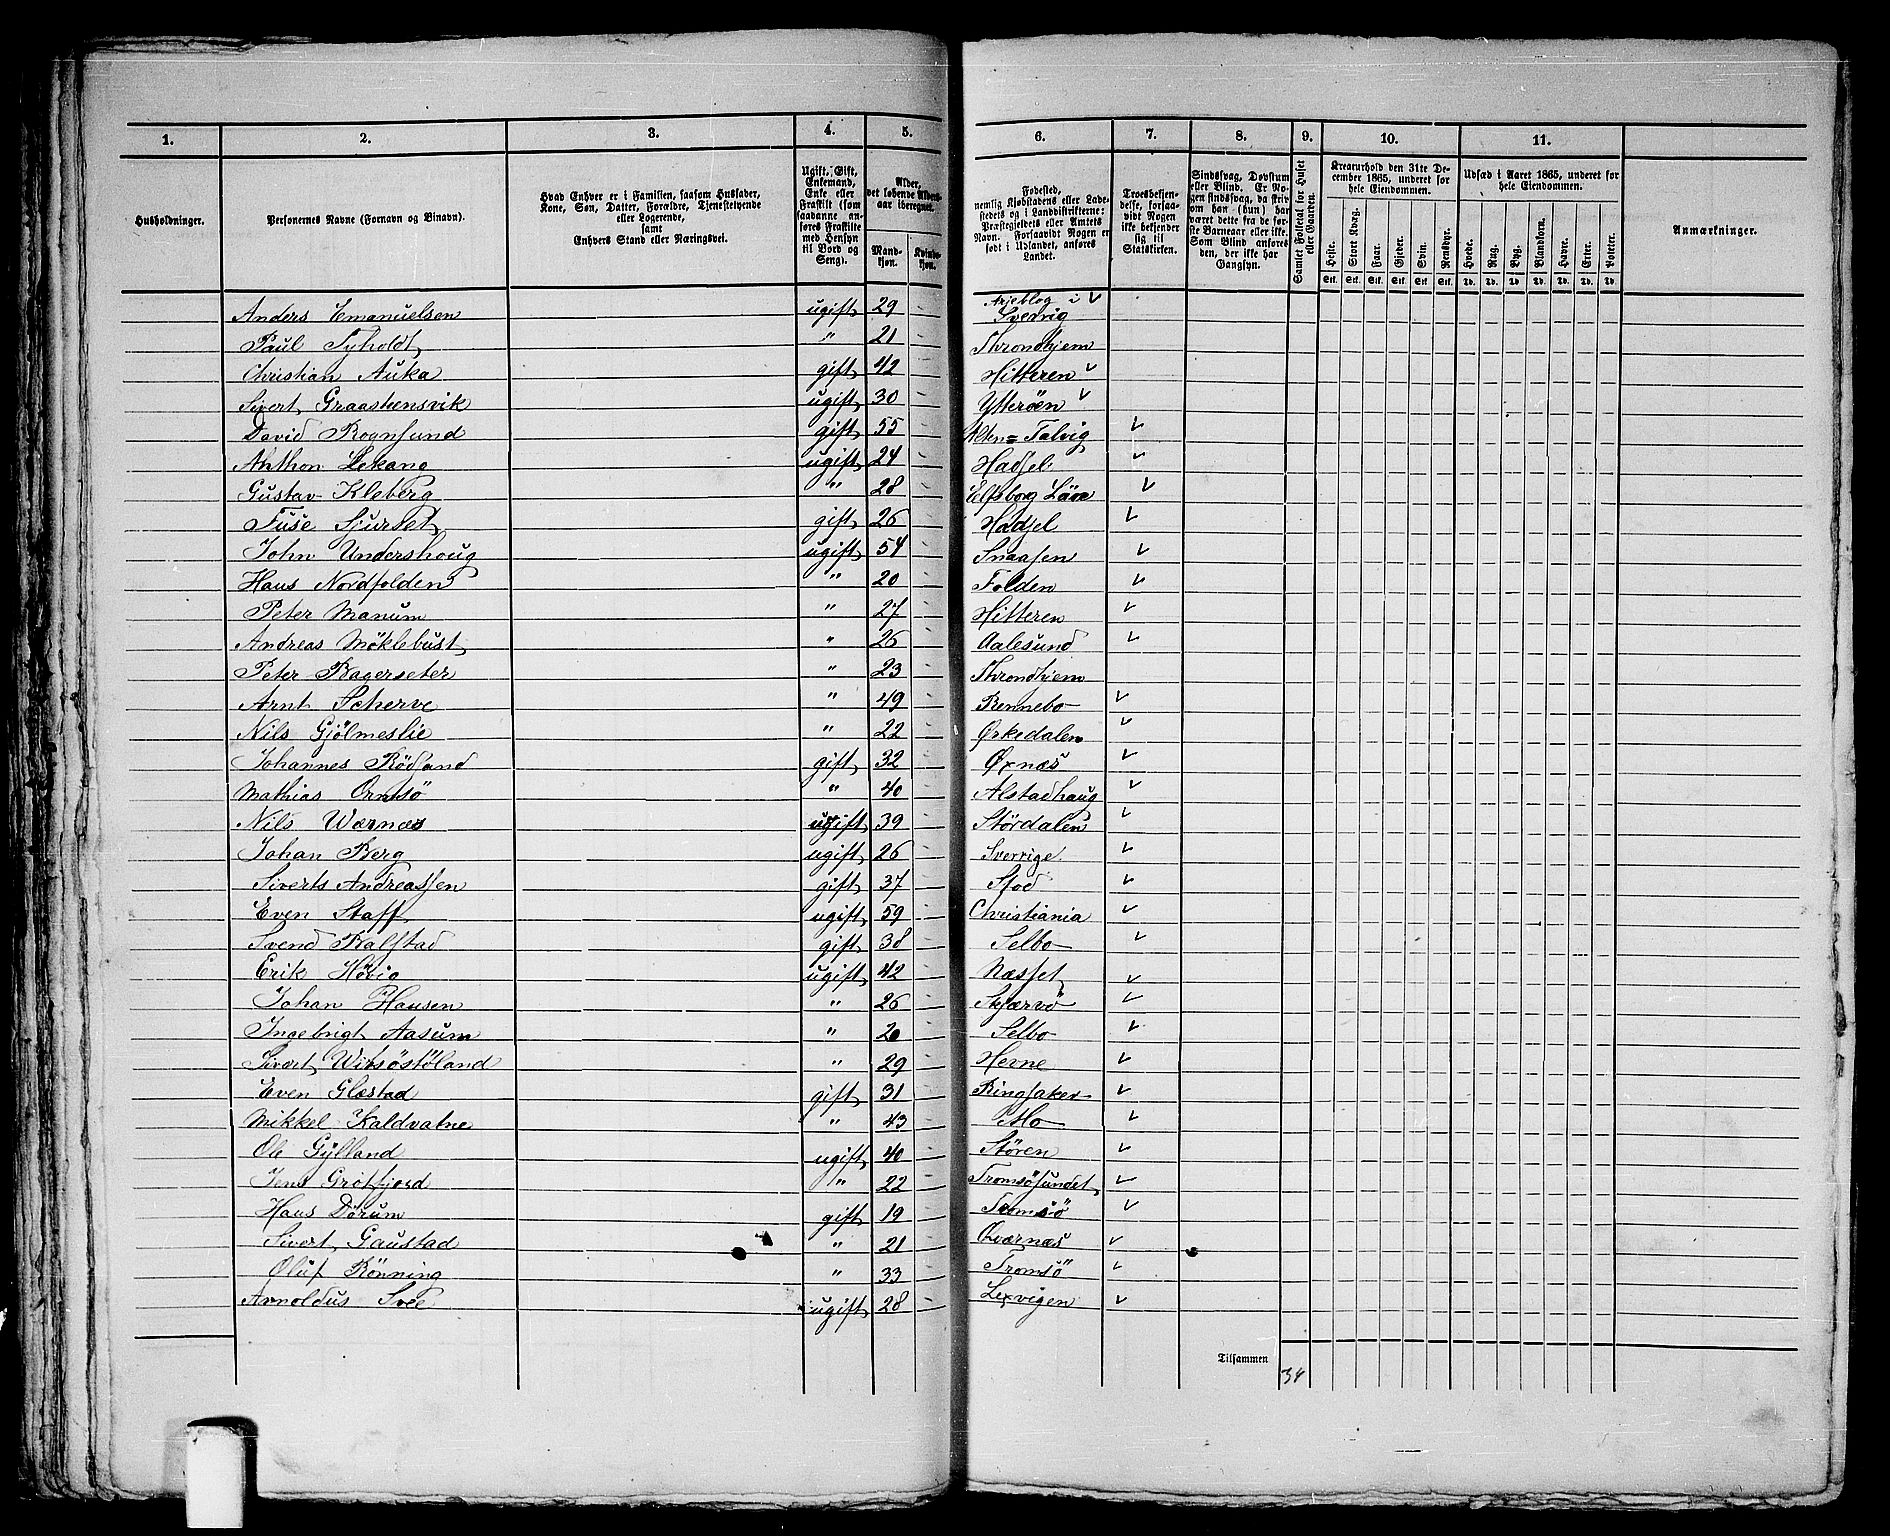 1. 2. 3. 4. 5. 6. 7. 8. 9. 10. 11.
Husholdninger.
Personernes Navne (Fornavn og Binavn).
Hvad Enhver er i Familien, saasom Husfader,
Kone, Søn, Datter, Forældre, Tjenestetyende
eller Logerende,
samt
Enhvers Stand eller Næringsvei.
Ugift, Gift,
Enkemand,
Enke eller
Fraskilt (som
saadanne an-
føres Fraskilte
med Hensyn
til Bord og
Seng).
Alder,
det løbende Alders-
aar iberegnet.
Mand-
kjøn.
Kvinde-
kjøn.
Fødested,
nemlig Kjøbstadens eller Lade-
stedets og i Landdistrikterne:
Præstegjeldets eller Amtets
Navn. Forsaavidt Nogen er
født i Udlandet, anføres
Landet.
Troesbekjen-
delse, forsaa-
vidt Nogen
ikke bekjender
sig til
Statskirken.
Sindssvag, Døvstum
eller Blind. Er No-
gen sindssvag, da skriv
om han (hun) har
været dette fra de før-
ste Barneaar eller ikke.
Som Blind anføres
den, der ikke har
Gangsyn.
Samlet Folketal for Huset
eller Gaarden.
Kreaturhold den 31te De-
cember 1865, underet for
hele Eiendommen.
Heste. Stort Kvæg. Faar. Gjeder. Svin. Rensdyr.
Stk. Stk. Stk. Stk. Stk. Stk.
Udsæd i Aaret 1865, underet for
hele Eiendommen.
Hvede. Rug. Byg. Blandkorn. Havre. Erter. Poteter.
Td. Td. Td. Td. Td. Td. Td.
Anmærkninger.
Anders Emanuelsen ugift 29 Arjeblog i Sverrig
Paul Tyholdt " 21 Throndhjem
Christian Auka gift 42 Hitteren
Sivert Graasteensvik ugift 30 Ytterøen
David Rognsund gift 55 Alten=Talvig
Anthon Lekang ugift 24 Hadsel
Gustav Kleberg " 28 Elfsborg Län
Tuse Sjurset gift 26 Hadsel
John Undershoug ugift 54 Snaasen
Hans Nordfolden " 20 Folden
Peter Manum " 27 Hitteren
Andreas Møklebust " 26 Aalesund
Peter Bagerseter " 23 Throndhjem
Arnt Scherve " 49 Rennebo
Nils Gjölmeslie " 22 Ørkedalen
Johannes Rödsand gift 32 Øxnæs
Mathias Ormsö " 40 Alstadhaug
Nils Wærnæs ugift 39 Størdalen
Johan Berg ugift 26 Sverrige
Siverts Andreassen gift 37 Stod
Even Staff ugift 59 Christiania
Svend Balstad gift 38 Selbo
Erik Høvig ugift 42 Næsset
Johan Hansen " 26 Skjærvö
Ingebrigt Aasum " 20 Selbo
Sivert Witsöstöland " 29 Hevne
Even Glæstad gift 31 Ringsaker
Mikkel Kaldvatne " 43 Mo
Ole Gylland ugift 40 Støren
Jens Grötfjord " 22 Tromsösundet
Hans Dörum gift 19 Tromsö
Sivert Gaustad " 21 Qværnæs
Oluf Rönning " 33 Tromsö
Arnoldus Svee ugift 28 Lexvigen
Tilsammen 34